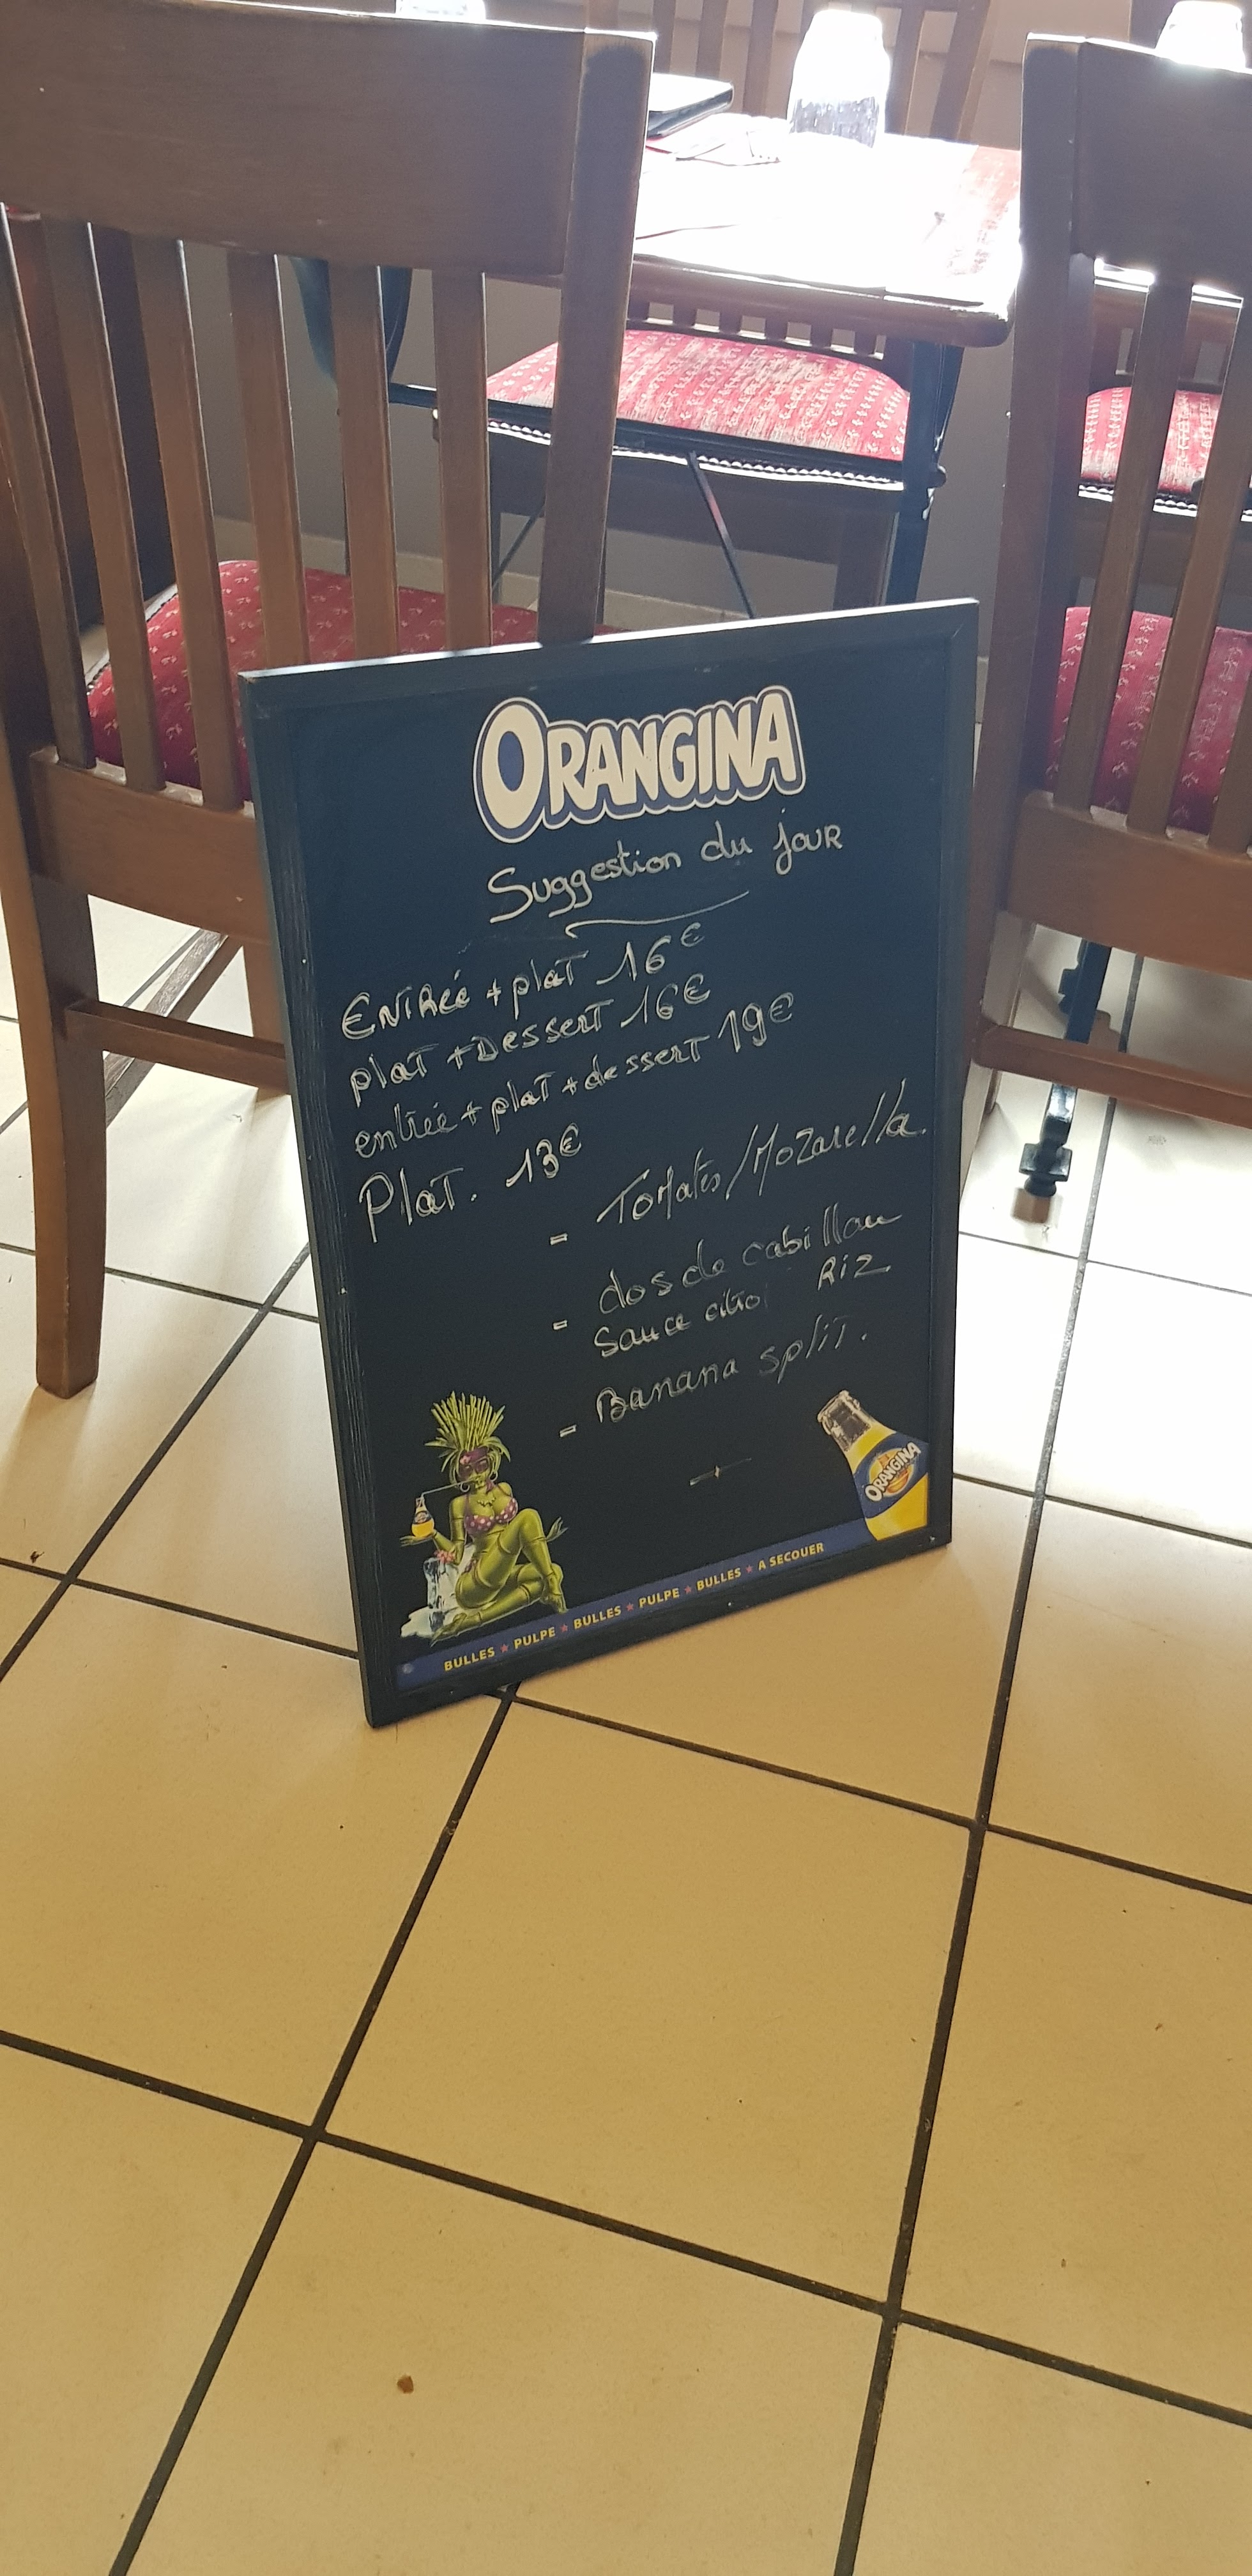 ORANGINA
Suggestion du jour
ENTRée + plat 16€
plat + Dessert 16€
entrée + plat + dessert 19€
Plat. 13€
- Tomates/Mozarella.
- dos de cabillau
Sauce citro Riz
- Banana split.
ORANGINA
BULLES ★ PULPE ★ BULLES ★ PULPE ★ BULLES ★ A SECOUER